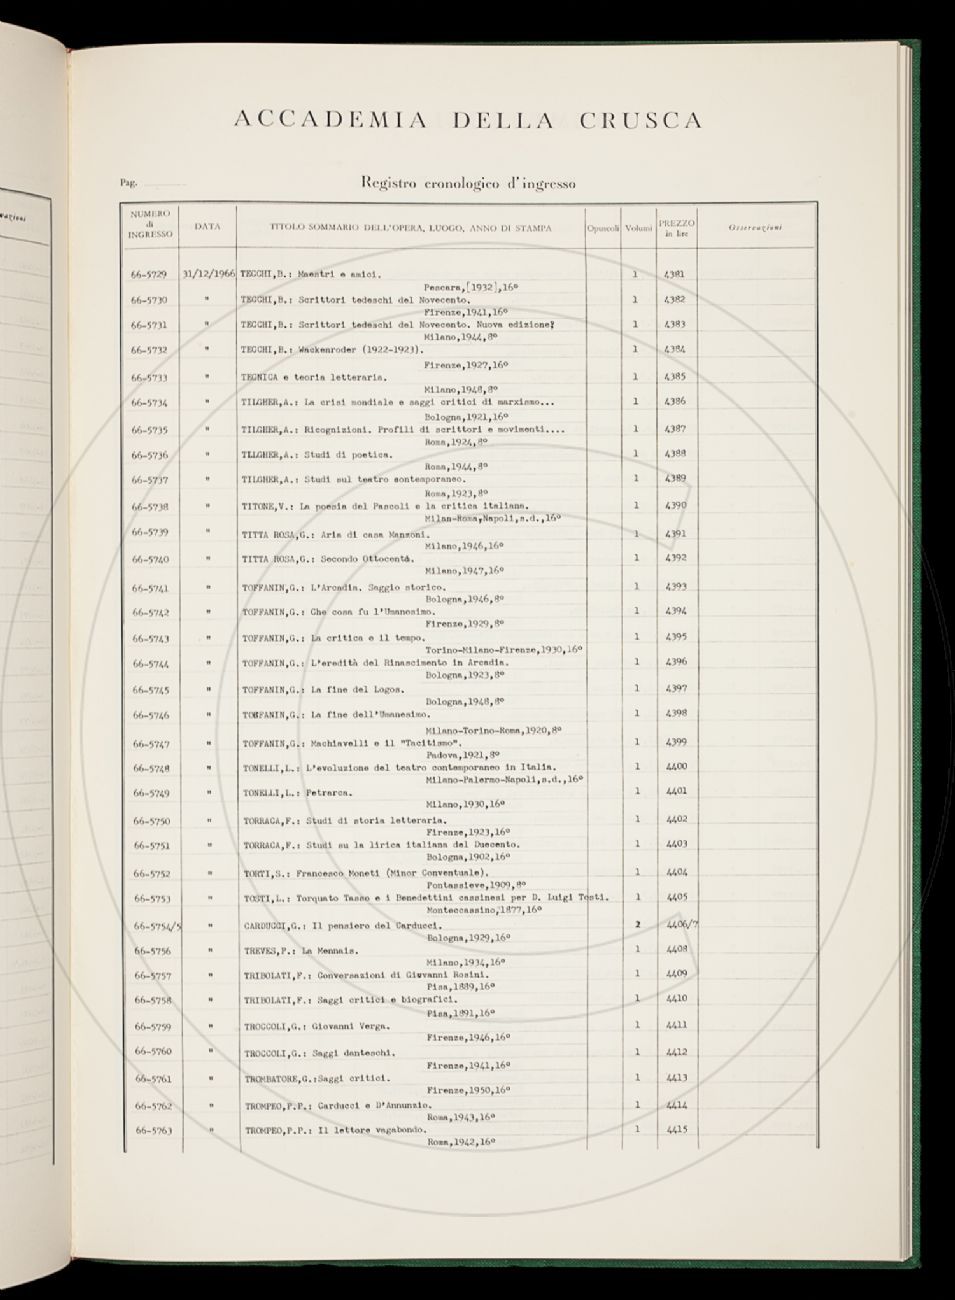 ACCADEMIA DELLA CRUSCA
Pag. Registro cronologico d'ingresso
NUMERO di INGRESSO DATA TITOLO SOMMARIO DELL'OPERA, LUOGO, ANNO DI STAMPA Opuscoli Volumi PREZZO in lire Osservazioni
66-5729 31/12/1966 TECCHI,B.: Maestri e amici. 1 4381
Pescara,[1932],16º
66-5730 " TECCHI,B.: Scrittori tedeschi del Novecento. 1 4382
Firenze,1941,16º
66-5731 " TECCHI,B.: Scrittori tedeschi del Novecento. Nuova edizione? 1 4383
Milano,1944,8º
66-5732 " TECCHI,B.: Wackenroder (1922-1923). 1 4384
Firenze,1927,16º
66-5733 " TECNICA e teoria letteraria. 1 4385
Milano,1948,8º
66-5734 " TILGHER,A.: La crisi mondiale e saggi critici di marxismo... 1 4386
Bologna,1921,16º
66-5735 " TILGHER,A.: Ricognizioni. Profili di scrittori e movimenti.... 1 4387
Roma,1924,8º
66-5736 " TLLGHER,A.: Studi di poetica. 1 4388
Roma,1944,8º
66-5737 " TILGHER,A.: Studi sul teatro contemporaneo. 1 4389
Roma,1923,8º
66-5738 " TITONE,V.: La poesia del Pascoli e la critica italiana. 1 4390
Milan-Roma,Napoli,s.d.,16º
66-5739 " TITTA ROSA,G.: Aria di casa Manzoni. 1 4391
Milano,1946,16º
66-5740 " TITTA ROSA,G.: Secondo Ottocentà. 1 4392
Milano,1947,16º
66-5741 " TOFFANIN,G.: L'Arcadia. Saggio storico. 1 4393
Bologna,1946,8º
66-5742 " TOFFANIN,G.: Che cosa fu l'Umanesimo. 1 4394
Firenze,1929,8º
66-5743 " TOFFANIN,G.: La critica e il tempo. 1 4395
Torino-Milano-Firenze,1930,16º
66-5744 " TOFFANIN,G.: L'eredità del Rinascimento in Arcadia. 1 4396
Bologna,1923,8º
66-5745 " TOFFANIN,G.: La fine del Logos. 1 4397
Bologna,1948,8º
66-5746 " TOFFANIN,G.: La fine dell'Umanesimo. 1 4398
Milano-Torino-Roma,1920,8º
66-5747 " TOFFANIN,G.: Machiavelli e il "Tacitismo". 1 4399
Padova,1921,8º
66-5748 " TONELLI,L.: L'evoluzione del teatro contemporaneo in Italia. 1 4400
Milano-Palermo-Napoli,s.d.,16º
66-5749 " TONELLI,L.: Petrarca. 1 4401
Milano,1930,16º
66-5750 " TORRACA,F.: Studi di storia letteraria. 1 4402
Firenze,1923,16º
66-5751 " TORRACA,F.: Studi su la lirica italiana del Duecento. 1 4403
Bologna,1902,16º
66-5752 " TORTI,S.: Francesco Moneti (Minor Conventuale). 1 4404
Pontassieve,1909,8º
66-5753 " TOSTI,L.: Torquato Tasso e i Benedettini cassinesi per D. Luigi Tosti. 1 4405
Montecassino,1877,16º
66-5754/5 " CARDUCCI,G.: Il pensiero del Carducci. 2 4406/7
Bologna,1929,16º
66-5756 " TREVES,P.: La Mennais. 1 4408
Milano,1934,16º
66-5757 " TRIBOLATI,F.: Conversazioni di Giovanni Rosini. 1 4409
Pisa,1889,16º
66-5758 " TRIBOLATI,F.: Saggi critici e biografici. 1 4410
Pisa,1891,16º
66-5759 " TROCCOLI,G.: Giovanni Verga. 1 4411
Firenze,1946,16º
66-5760 " TROCCOLI,G.: Saggi danteschi. 1 4412
Firenze,1941,16º
66-5761 " TROMBATORE,G.:Saggi critici. 1 4413
Firenze,1950,16º
66-5762 " TROMPEO,P.P.: Carducci e D'Annunzio. 1 4414
Roma,1943,16º
66-5763 " TROMPEO,P.P.: Il lettore vagabondo. 1 4415
Roma,1942,16º